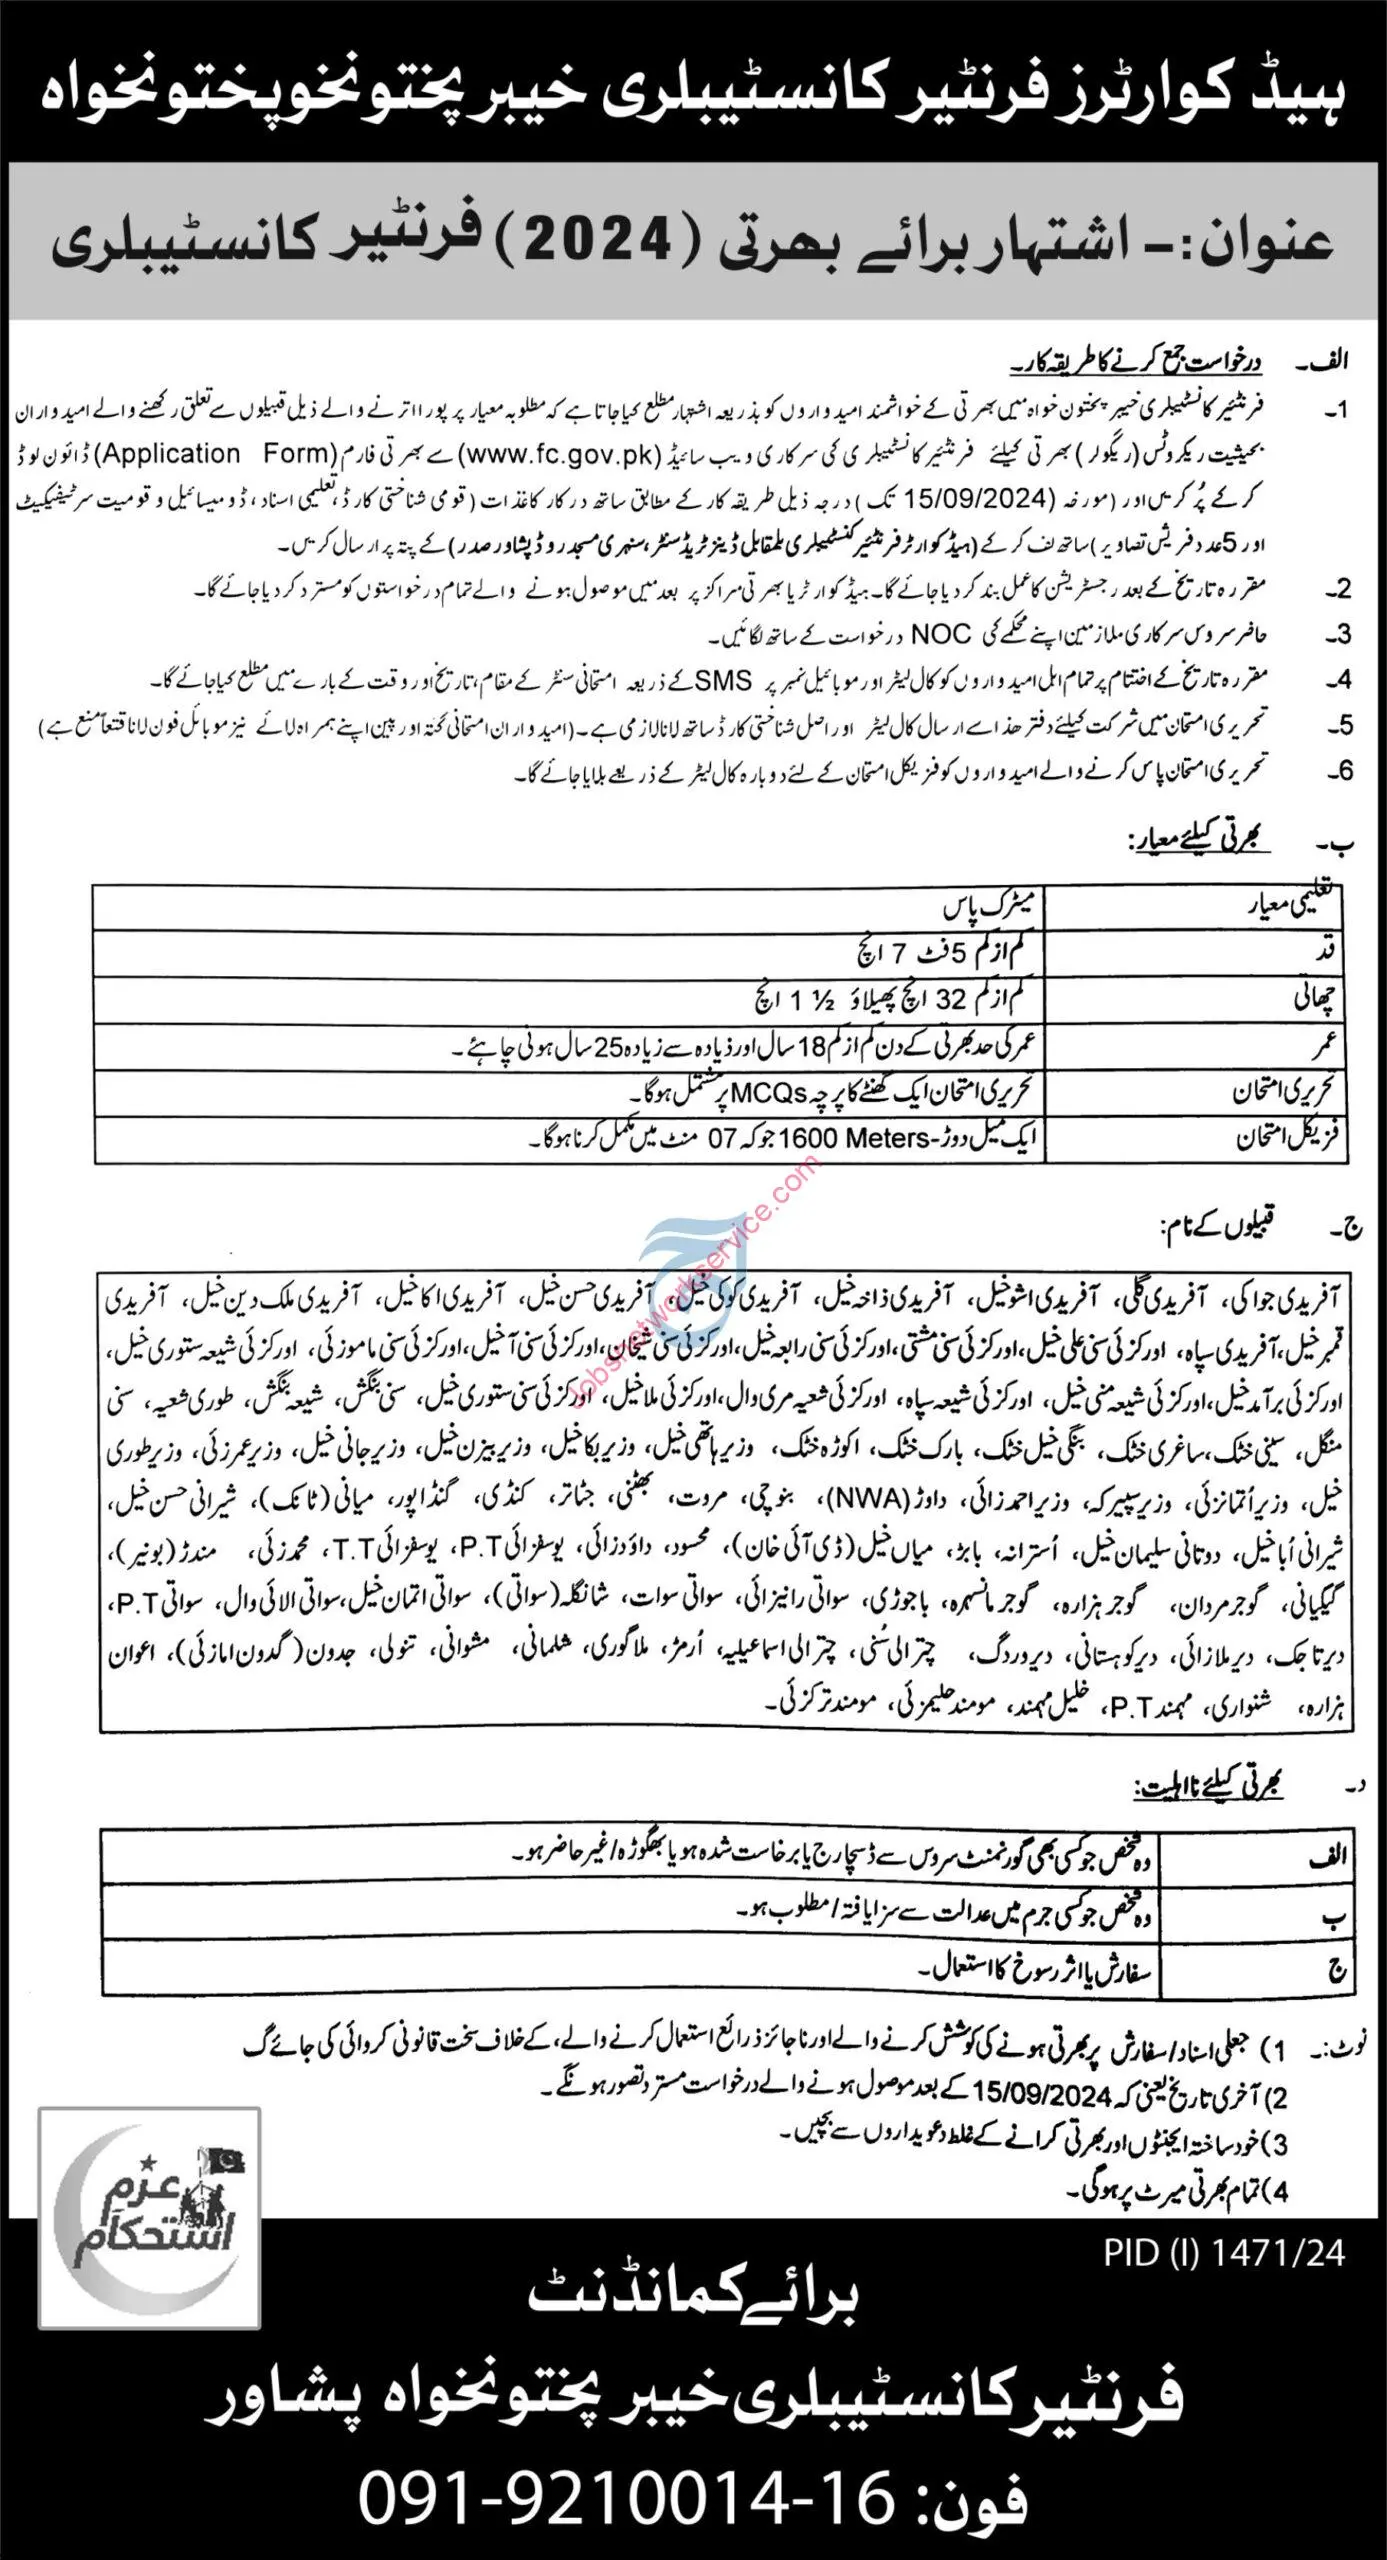 ہیڈ کوارٹرز فرنٹیر کانسٹیبلری خیبر پختونخوپختونخواہ
عنوان:- اشتہار برائے بھرتی (2024) فرنٹیر کانسٹیبلری
الف۔ درخواست جمع کرنے کا طریقہ کار۔
1۔ فرنٹیر کانسٹیبلری خیبر پختون خواہ میں بھرتی کے خواشمند امیدواروں کو بذریعہ اشتہار مطلع کیا جاتا ہے کہ مطلوبہ معیار پر پورا اترنے والے ذیل قبیلوں سے تعلق رکھنے والے امیدواران
بحیثیت ریکروٹس (ریگولر) بھرتی کیلئے فرنٹیر کانسٹیبلری کی سرکاری ویب سائیڈ (www.fc.gov.pk) سے بھرتی فارم (Application Form) ڈائون لوڈ
کر کے پُر کریں اور (مورخہ 15/09/2024 تک) درجہ ذیل طریقہ کار کے مطابق ساتھ درکار کاغذات (قومی شناختی کارڈ، تعلیمی اسناد، ڈومیسائیل و قومیت سرٹیفیکیٹ
اور 5 عدد فریش تصاویر) ساتھ لف کر کے (ہیڈ کوارٹر فرنٹیر کنسٹیبلری بلمقابل ڈینز ٹریڈ سنٹر، سنہری مسجد روڈ پشاور صدر) کے پتہ پر ارسال کریں۔
2۔ مقررہ تاریخ کے بعد رجسٹریشن کا عمل بند کر دیا جائے گا۔ ہیڈ کوارٹر یا بھرتی مراکز پر بعد میں موصول ہونے والے تمام درخواستوں کو مسترد کر دیا جائے گا۔
3۔ حاضر سروس سرکاری ملازمین اپنے محکمے کی NOC درخواست کے ساتھ لگائیں۔
4۔ مقررہ تاریخ کے اختتام پر تمام اہل امیدواروں کو کال لیٹر اور موبائیل نمبر پر SMS کے ذریعہ امتحانی سنٹر کے مقام، تاریخ اور وقت کے بارے میں مطلع کیا جائے گا۔
5۔ تحریری امتحان میں شرکت کیلئے دفتر ھذا سے ارسال کال لیٹر اور اصل شناختی کارڈ ساتھ لانا لازمی ہے۔ (امیدواران امتحانی گتہ اور پین اپنے ہمراہ لائے نیز موبائل فون لانا قتعاً منع ہے)
6۔ تحریری امتحان پاس کرنے والے امیدواروں کو فزیکل امتحان کے لئے دوبارہ کال لیٹر کے ذریعے بلایا جائے گا۔
ب۔ بھرتی کیلئے معیار:
تعلیمی معیار میٹرک پاس
قد کم از کم 5 فٹ 7 انچ
چھاتی کم از کم 32 انچ پھیلاؤ ½ 1 انچ
عمر عمر کی حد بھرتی کے دن کم از کم 18 سال اور زیادہ سے زیادہ 25 سال ہونی چاہئے۔
تحریری امتحان تحریری امتحان ایک گھنٹے کا پرچہ MCQs پر مشتمل ہوگا۔
فزیکل امتحان ایک میل دوڑ-1600 Meters جو کہ 07 منٹ میں مکمل کرنا ہوگا۔
ج۔ قبیلوں کے نام:
آفریدی جواکی، آفریدی گلی، آفریدی اشوخیل، آفریدی ذاخہ خیل، آفریدی کوکی خیل، آفریدی حسن خیل، آفریدی اکاخیل، آفریدی ملک دین خیل، آفریدی
قمبر خیل، آفریدی سپاہ، اورکزئی سنی علی خیل، اورکزئی سنی مشتی، اورکزئی سنی رابعہ خیل، اورکزئی سنی شیخان، اورکزئی سنی آخیل، اورکزئی سنی ماموزئی، اورکزئی شیعہ ستوری خیل،
اورکزئی برآمد خیل، اورکزئی شیعہ منی خیل، اورکزئی شیعہ سپاہ، اورکزئی شعیہ مری وال، اورکزئی ملاخیل، اورکزئی سنی ستوری خیل، سنی بنگش، شیعہ بنگش، طوری شعیہ، سنی
منگل، سینی خٹک، ساغری خٹک، بنگی خیل خٹک، بارک خٹک، اکوڑہ خٹک، وزیر ہاتھی خیل، وزیر بکاخیل، وزیر بیزن خیل، وزیر جانی خیل، وزیر عمرزئی، وزیر طوری
خیل، وزیر اُتمانزئی، وزیر سپیرکہ، وزیر احمدزائی، داوڑ (NWA)، بنوچی، مروت، بھٹنی، جٹاتر، کنڈی، گنڈاپور، میانی (ٹانک)، شیرانی حسن خیل،
شیرانی اُباخیل، دوتانی سلیمان خیل، اُسترانہ، بابڑ، میاں خیل (ڈی آئی خان)، محسود، داؤدزائی، یوسفزائی P.T، یوسفزائی T.T، محمدزئی، مندڑ (بونیر)،
گیگیانی، گوجر مردان، گوجر ہزارہ، گوجر مانسہرہ، باجوڑی، سواتی رانیزائی، سواتی سوات، شانگلہ (سواتی)، سواتی اتمان خیل، سواتی الائی وال، سواتی P.T،
دیر تاجک، دیر ملازائی، دیر کوہستانی، دیر وردگ، چترالی سُنی، چترالی اسماعیلیہ، اُرمڑ، ملاگوری، شلمانی، مشوانی، تنولی، جدون (گدون امازئی)، اعوان
ہزارہ، شنواری، مہمند P.T، خلیل مہمند، مومند حلیمزئی، مومند ترکزئی۔
د۔ بھرتی کیلئے نااہلیت:
الف وہ شخص جو کسی بھی گورنمنٹ سروس سے ڈسچارج یا برخاست شدہ ہو یا بھگوڑہ/غیر حاضر ہو۔
ب وہ شخص جو کسی جرم میں عدالت سے سزا یافتہ/مطلوب ہو۔
ج سفارش یا اثر رسوخ کا استعمال۔
نوٹ:۔ 1) جعلی اسناد/سفارش پر بھرتی ہونے کی کوشش کرنے والے اور ناجائز ذرائع استعمال کرنے والے، کے خلاف سخت قانونی کروائی کی جائے گ
2) آخری تاریخ یعنی کہ 15/09/2024 کے بعد موصول ہونے والے درخواست مسترد تصور ہونگے۔
3) خود ساختہ ایجنٹوں اور بھرتی کرانے کے غلط دعویداروں سے بچیں۔
4) تمام بھرتی میرٹ پر ہوگی۔
عزم
استحکام
PID (I) 1471/24
برائے کمانڈنٹ
فرنٹیر کانسٹیبلری خیبر پختونخواہ پشاور
فون: 091-9210014-16
Jobsnetworkservice.com